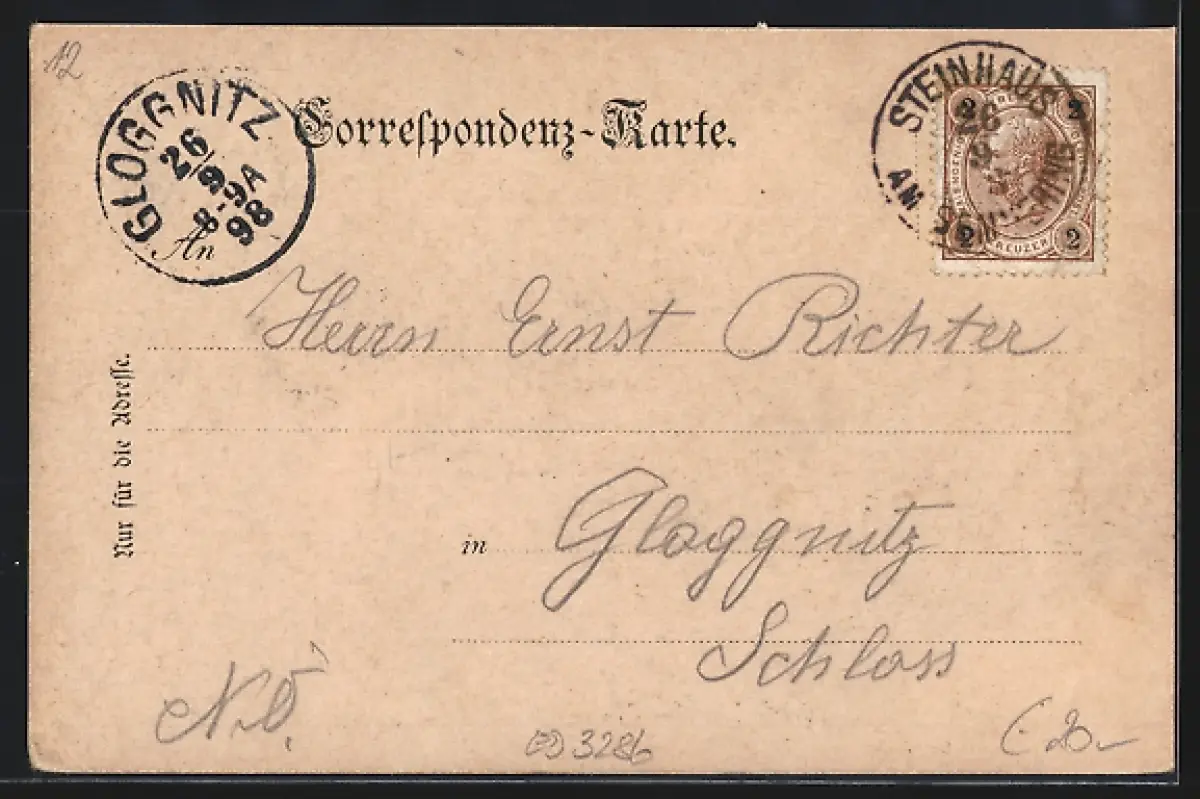 12
Correſpondenz-Karte.
GLOGGNITZ
26/9
8-9A
98
An
STEINHAUS
26
AM SEMMERING
2 2
2 KREUZER 2
Herrn Ernst Richter
Nur für die Adreſſe.
in Gloggnitz
Schloss
N.Ö.
3286
20-